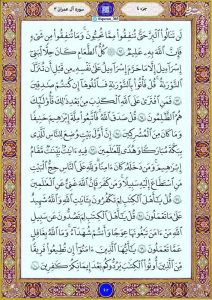 سورة آل عمران ٣
جزء ٤
لَن تَنَالُوا۟ ٱلْبِرَّ حَتَّىٰ تُنفِقُوا۟ مِمَّا تُحِبُّونَ وَمَا تُنفِقُوا۟ مِن شَىْءٍ
فَإِنَّ ٱللَّهَ بِهِۦ عَلِيمٌ ۝ كُلُّ ٱلطَّعَامِ كَانَ حِلًّا لِّبَنِىٓ
إِسْرَٰٓءِيلَ إِلَّا مَا حَرَّمَ إِسْرَٰٓءِيلُ عَلَىٰ نَفْسِهِۦ مِن قَبْلِ أَن تُنَزَّلَ
ٱلتَّوْرَىٰةُ قُلْ فَأْتُوا۟ بِٱلتَّوْرَىٰةِ فَٱتْلُوهَآ إِن كُنتُمْ صَٰدِقِينَ
۝ فَمَنِ ٱفْتَرَىٰ عَلَى ٱللَّهِ ٱلْكَذِبَ مِنۢ بَعْدِ ذَٰلِكَ فَأُو۟لَٰٓئِكَ
هُمُ ٱلظَّٰلِمُونَ ۝ قُلْ صَدَقَ ٱللَّهُ فَٱتَّبِعُوا۟ مِلَّةَ إِبْرَٰهِيمَ حَنِيفًا
وَمَا كَانَ مِنَ ٱلْمُشْرِكِينَ ۝ إِنَّ أَوَّلَ بَيْتٍ وُضِعَ لِلنَّاسِ لَلَّذِى
بِبَكَّةَ مُبَارَكًا وَهُدًى لِّلْعَٰلَمِينَ ۝ فِيهِ ءَايَٰتٌۢ بَيِّنَٰتٌ مَّقَامُ
إِبْرَٰهِيمَ وَمَن دَخَلَهُۥ كَانَ ءَامِنًا وَلِلَّهِ عَلَى ٱلنَّاسِ حِجُّ ٱلْبَيْتِ
مَنِ ٱسْتَطَاعَ إِلَيْهِ سَبِيلًا وَمَن كَفَرَ فَإِنَّ ٱللَّهَ غَنِىٌّ عَنِ ٱلْعَٰلَمِينَ
۝ قُلْ يَٰٓأَهْلَ ٱلْكِتَٰبِ لِمَ تَكْفُرُونَ بِـَٔايَٰتِ ٱللَّهِ وَٱللَّهُ شَهِيدٌ
عَلَىٰ مَا تَعْمَلُونَ ۝ قُلْ يَٰٓأَهْلَ ٱلْكِتَٰبِ لِمَ تَصُدُّونَ عَن سَبِيلِ
ٱللَّهِ مَنْ ءَامَنَ تَبْغُونَهَا عِوَجًا وَأَنتُمْ شُهَدَآءُ وَمَا ٱللَّهُ بِغَٰفِلٍ
عَمَّا تَعْمَلُونَ ۝ يَٰٓأَيُّهَا ٱلَّذِينَ ءَامَنُوٓا۟ إِن تُطِيعُوا۟ فَرِيقًا
مِّنَ ٱلَّذِينَ أُوتُوا۟ ٱلْكِتَٰبَ يَرُدُّوكُم بَعْدَ إِيمَٰنِكُمْ كَٰفِرِينَ ۝
٦٢